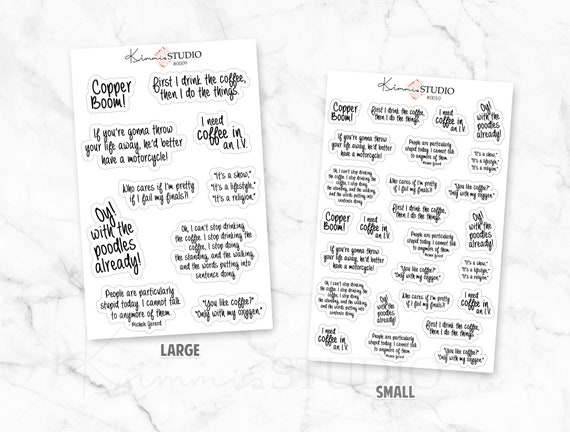 Kimmis STUDIO
#0009
Copper
Boom!
First I drink the coffee,
then I do the things.
If you're gonna throw
your life away, he'd better
have a motorcycle!
I need
coffee in
an I.V.
Who cares if I'm pretty
if I fail my finals?!
"It's a show."
"It's a lifestyle."
"It's a religion."
Oy!
with the
poodles
already!
Oh, I can't stop drinking
the coffee. I stop drinking the
coffee, I stop doing
the standing, and the walking,
and the words putting into
sentence doing.
People are particularly
stupid today. I cannot talk
to anymore of them.
Michele Gerard
"You like coffee?"
"Only with my oxygen."
LARGE
Kimmis STUDIO
#0010
Copper
Boom!
First I drink the coffee,
then I do the things.
I need
coffee in
an I.V.
Oy!
with the
poodles
already!
If you're gonna throw
your life away, he'd better
have a motorcycle!
People are particularly
stupid today. I cannot talk
to anymore of them.
Michele Gerard
"It's a show."
"It's a lifestyle."
"It's a religion."
Oh, I can't stop drinking
the coffee. I stop drinking
the coffee, I stop doing
the standing, and the walking,
and the words putting into
sentence doing.
Who cares if I'm pretty
if I fail my finals?!
"You like coffee?"
"Only with my oxygen."
First I drink the coffee,
then I do the things.
Copper
Boom!
I need
coffee in
an I.V.
Oy!
with the
poodles
already!
People are particularly
stupid today. I cannot talk
to anymore of them.
Michele Gerard
If you're gonna throw
your life away, he'd better
have a motorcycle!
"You like coffee?"
"Only with my oxygen."
"It's a show."
"It's a lifestyle."
"It's a religion."
Oh, I can't stop drinking
the coffee. I stop drinking
the coffee, I stop doing
the standing, and the walking,
and the words putting into
sentence doing.
Oy!
with the
poodles
already!
Who cares if I'm pretty
if I fail my finals?!
I need
coffee in
an I.V.
I need
coffee in
an I.V.
First I drink the coffee,
then I do the things.
People are particularly
stupid today. I cannot talk
to anymore of them.
Michele Gerard
"You like coffee?"
"Only with my oxygen."
SMALL
Kimmis STUDIO